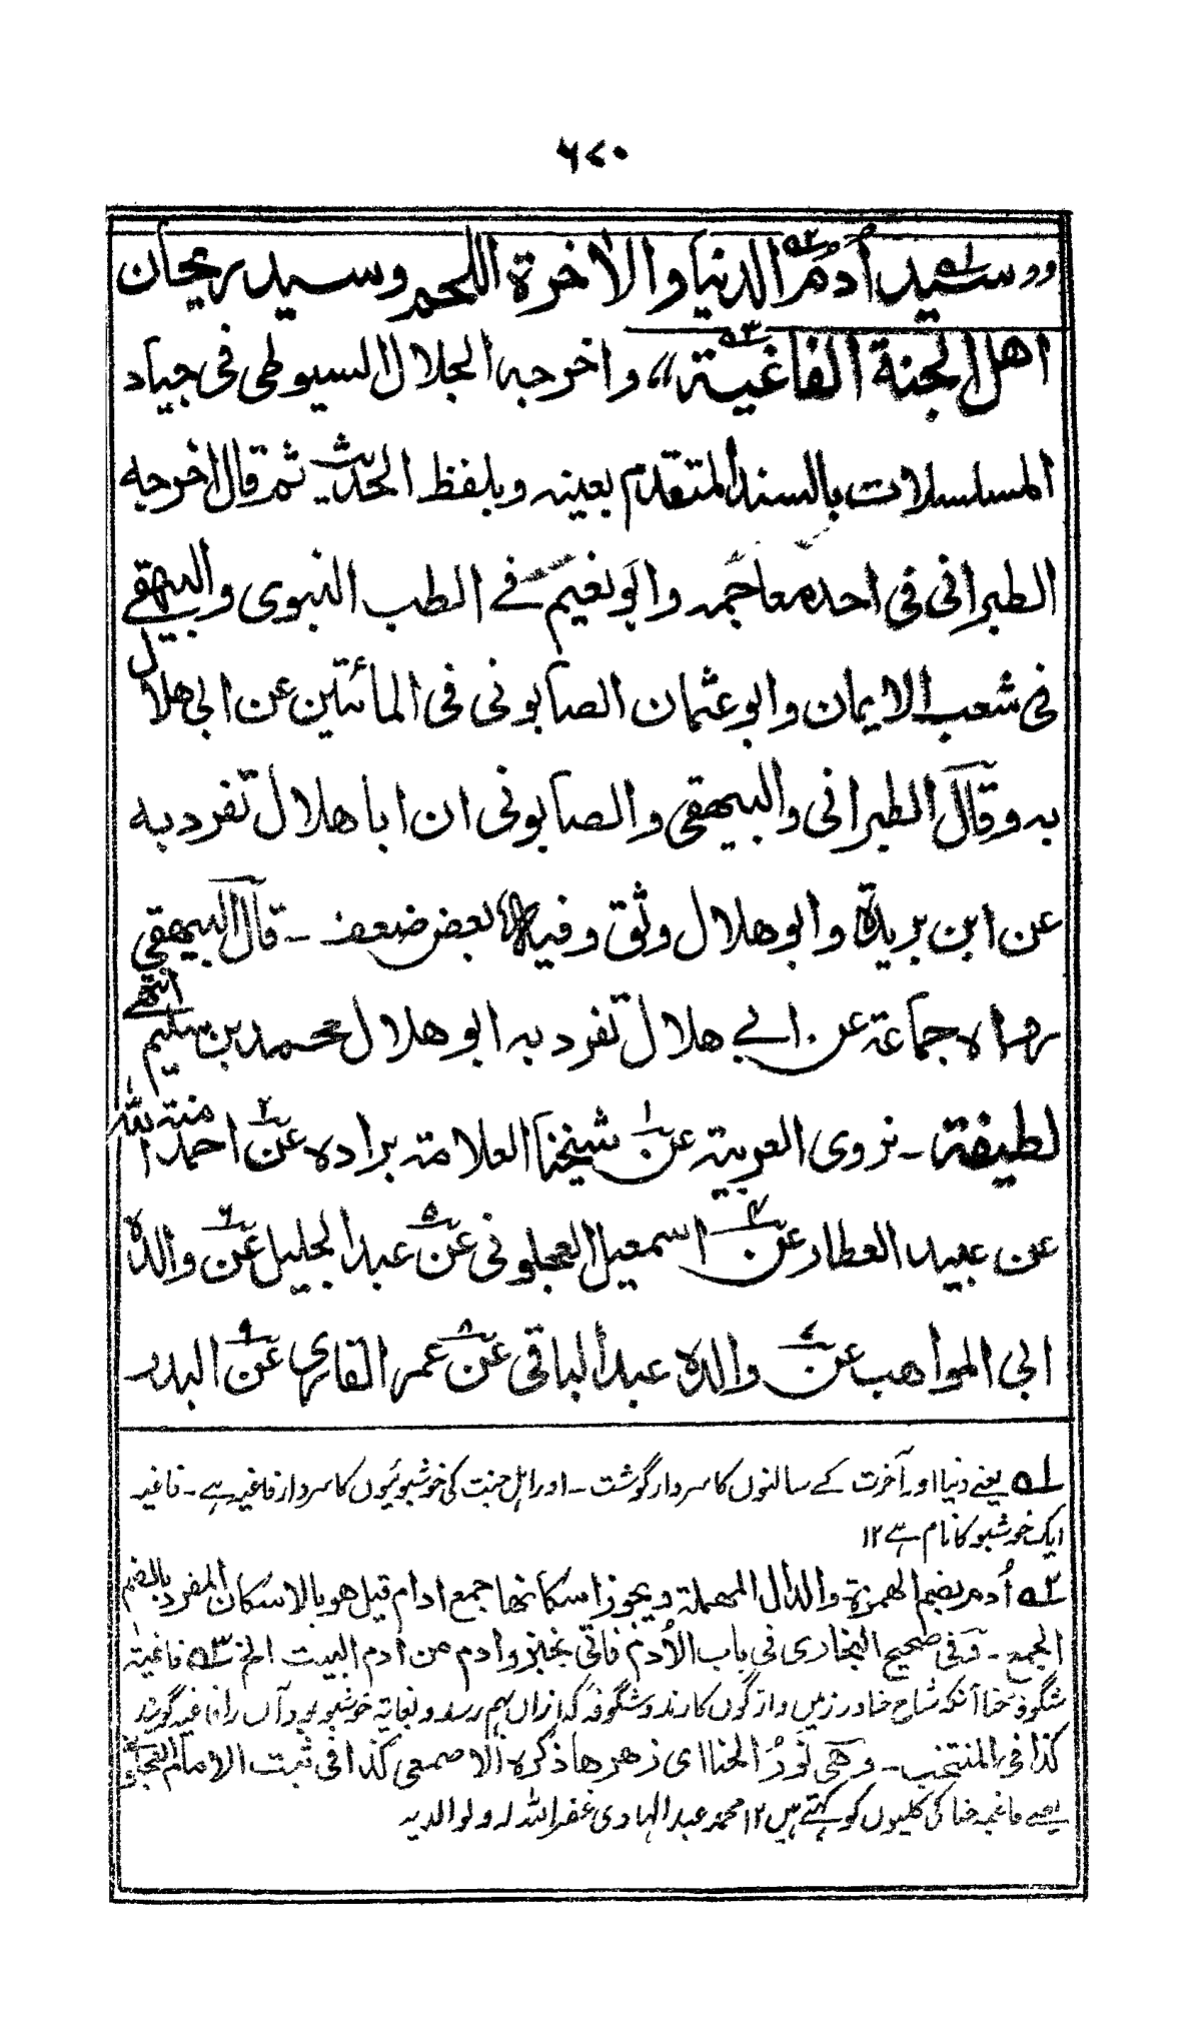 ۶۷۰
«سيد اُدُم الدنيا والاخرة اللحم وسيد ريحان
اهل الجنة الفاغية» واخرجه الجلال السيوطى فى جياد
المسلسلات بالسند المتقدم بعينه وبلفظ الحديث ثم قال اخرجه
الطبرانى فى احد معاجمه وابو نعيم فے الطب النبوى والبيهقے
فى شعب الايمان وابو عثمان الصابونى فى المأتين عن ابى هلال
به وقال الطبرانى والبيهقى والصابونى ان ابا هلال تفرد به
عن ابن بريدة وابو هلال وثق وفيه بعض ضعف - قال البيهقى
رواه جماعة عن ابي هلال تفرد به ابو هلال محمد بن سليم انتهے
لطيفة - نروى العربية عن۱ شيخنا العلامة براده عن۲ احمد منة الله
عن عبيد العطار عن۴ اسمعيل العجلونى عن۵ عبد الجليل عن۶ والده
ابى المواهب عن۷ والده عبد الباقى عن۸ عمر القارى عن۹ البدر
۱ه یعنے دنیا اور آخرت کے سالنوں کا سردار گوشت - اور اہل جنت کی خوشبوئیوں کا سردار فاغیہ ہے - فاغیہ
ایک خوشبو کا نام ہے ۱۲
۲ه اُدم بضم الهمزة والدال المهملة ويجوز اسكانها جمع ادام قيل هو بالاسكان المفرد بالضم
الجمع - وفى صحيح البخارى فى باب الأدم فاتى بخبز وادم من ادم البيت الخ ۳ه فاغية
شگوفہ حنا آنکہ شاخ حنا در زمیں واژگوں کارند و شگوفہ کہ ازاں بہم رسد و بغایة خوشبو بود آں را فاغیہ گویند
كذا فى المنتخب - وهى نَورُ الحناء اى زهرها ذكره الاصمعى كذا فى ثبت الامام
یعنے فاغیہ حنا کی کلیوں کو کہتے ہیں ۱۲ محمد عبد الہادی غفر اللہ لہ ولوالدیہ